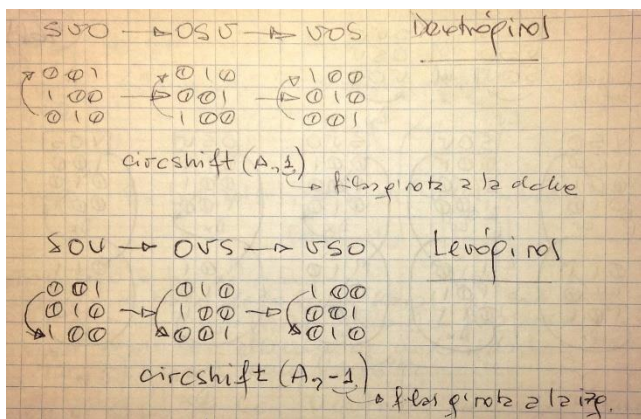 SVO → OSV → VOS Dextrógiros
0 0 1 0 1 0 1 0 0
1 0 0 → 0 0 1 → 0 1 0
0 1 0 1 0 0 0 0 1
circshift (A, 1)
→ filas q' rota a la dcha
SOV → OVS → VSO Levógiros
0 0 1 0 1 0 1 0 0
0 1 0 → 1 0 0 → 0 0 1
1 0 0 0 0 1 0 1 0
circshift (A, -1)
→ filas q' rota a la izq.